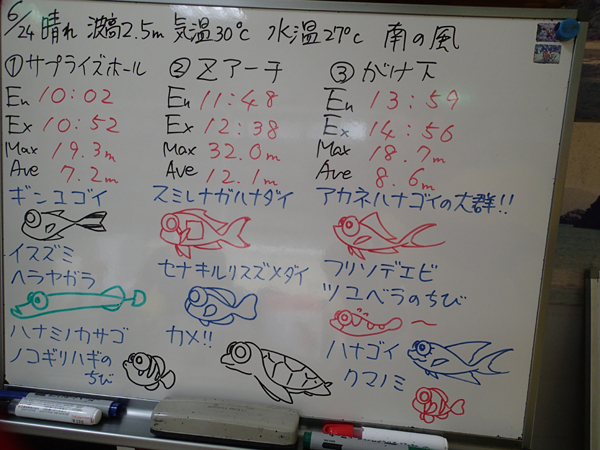 6/24 晴れ 波高2.5m 気温30℃ 水温27℃ 南の風
①サプライズホール
En 10:02
Ex 10:52
Max 19.3m
Ave 7.2m
ギンユゴイ
イスズミ
ヘラヤガラ
ハナミノカサゴ
ノコギリハギの
ちび
②Zアーチ
En 11:48
Ex 12:38
Max 32.0m
Ave 12.1m
スミレナガハナダイ
セナキルリスズメダイ
カメ!!
③がけ下
En 13:59
Ex 14:56
Max 18.7m
Ave 8.6m
アカネハナゴイの大群!!
フリソデエビ
ツユベラのちび
ハナゴイ
クマノミ